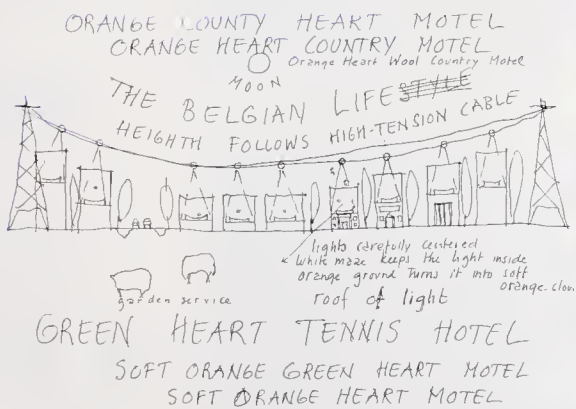 ORANGE COUNTY HEART MOTEL
ORANGE HEART COUNTRY MOTEL
Orange Heart Wool Country Motel
MOON
THE BELGIAN LIFESTYLE
HEIGHTH FOLLOWS HIGH-TENSION CABLE
lights carefully centered
White maze keeps the light inside
orange ground turns it into soft
orange-clou
roof of light
garden service
GREEN HEART TENNIS HOTEL
SOFT ORANGE GREEN HEART MOTEL
SOFT ORANGE HEART MOTEL